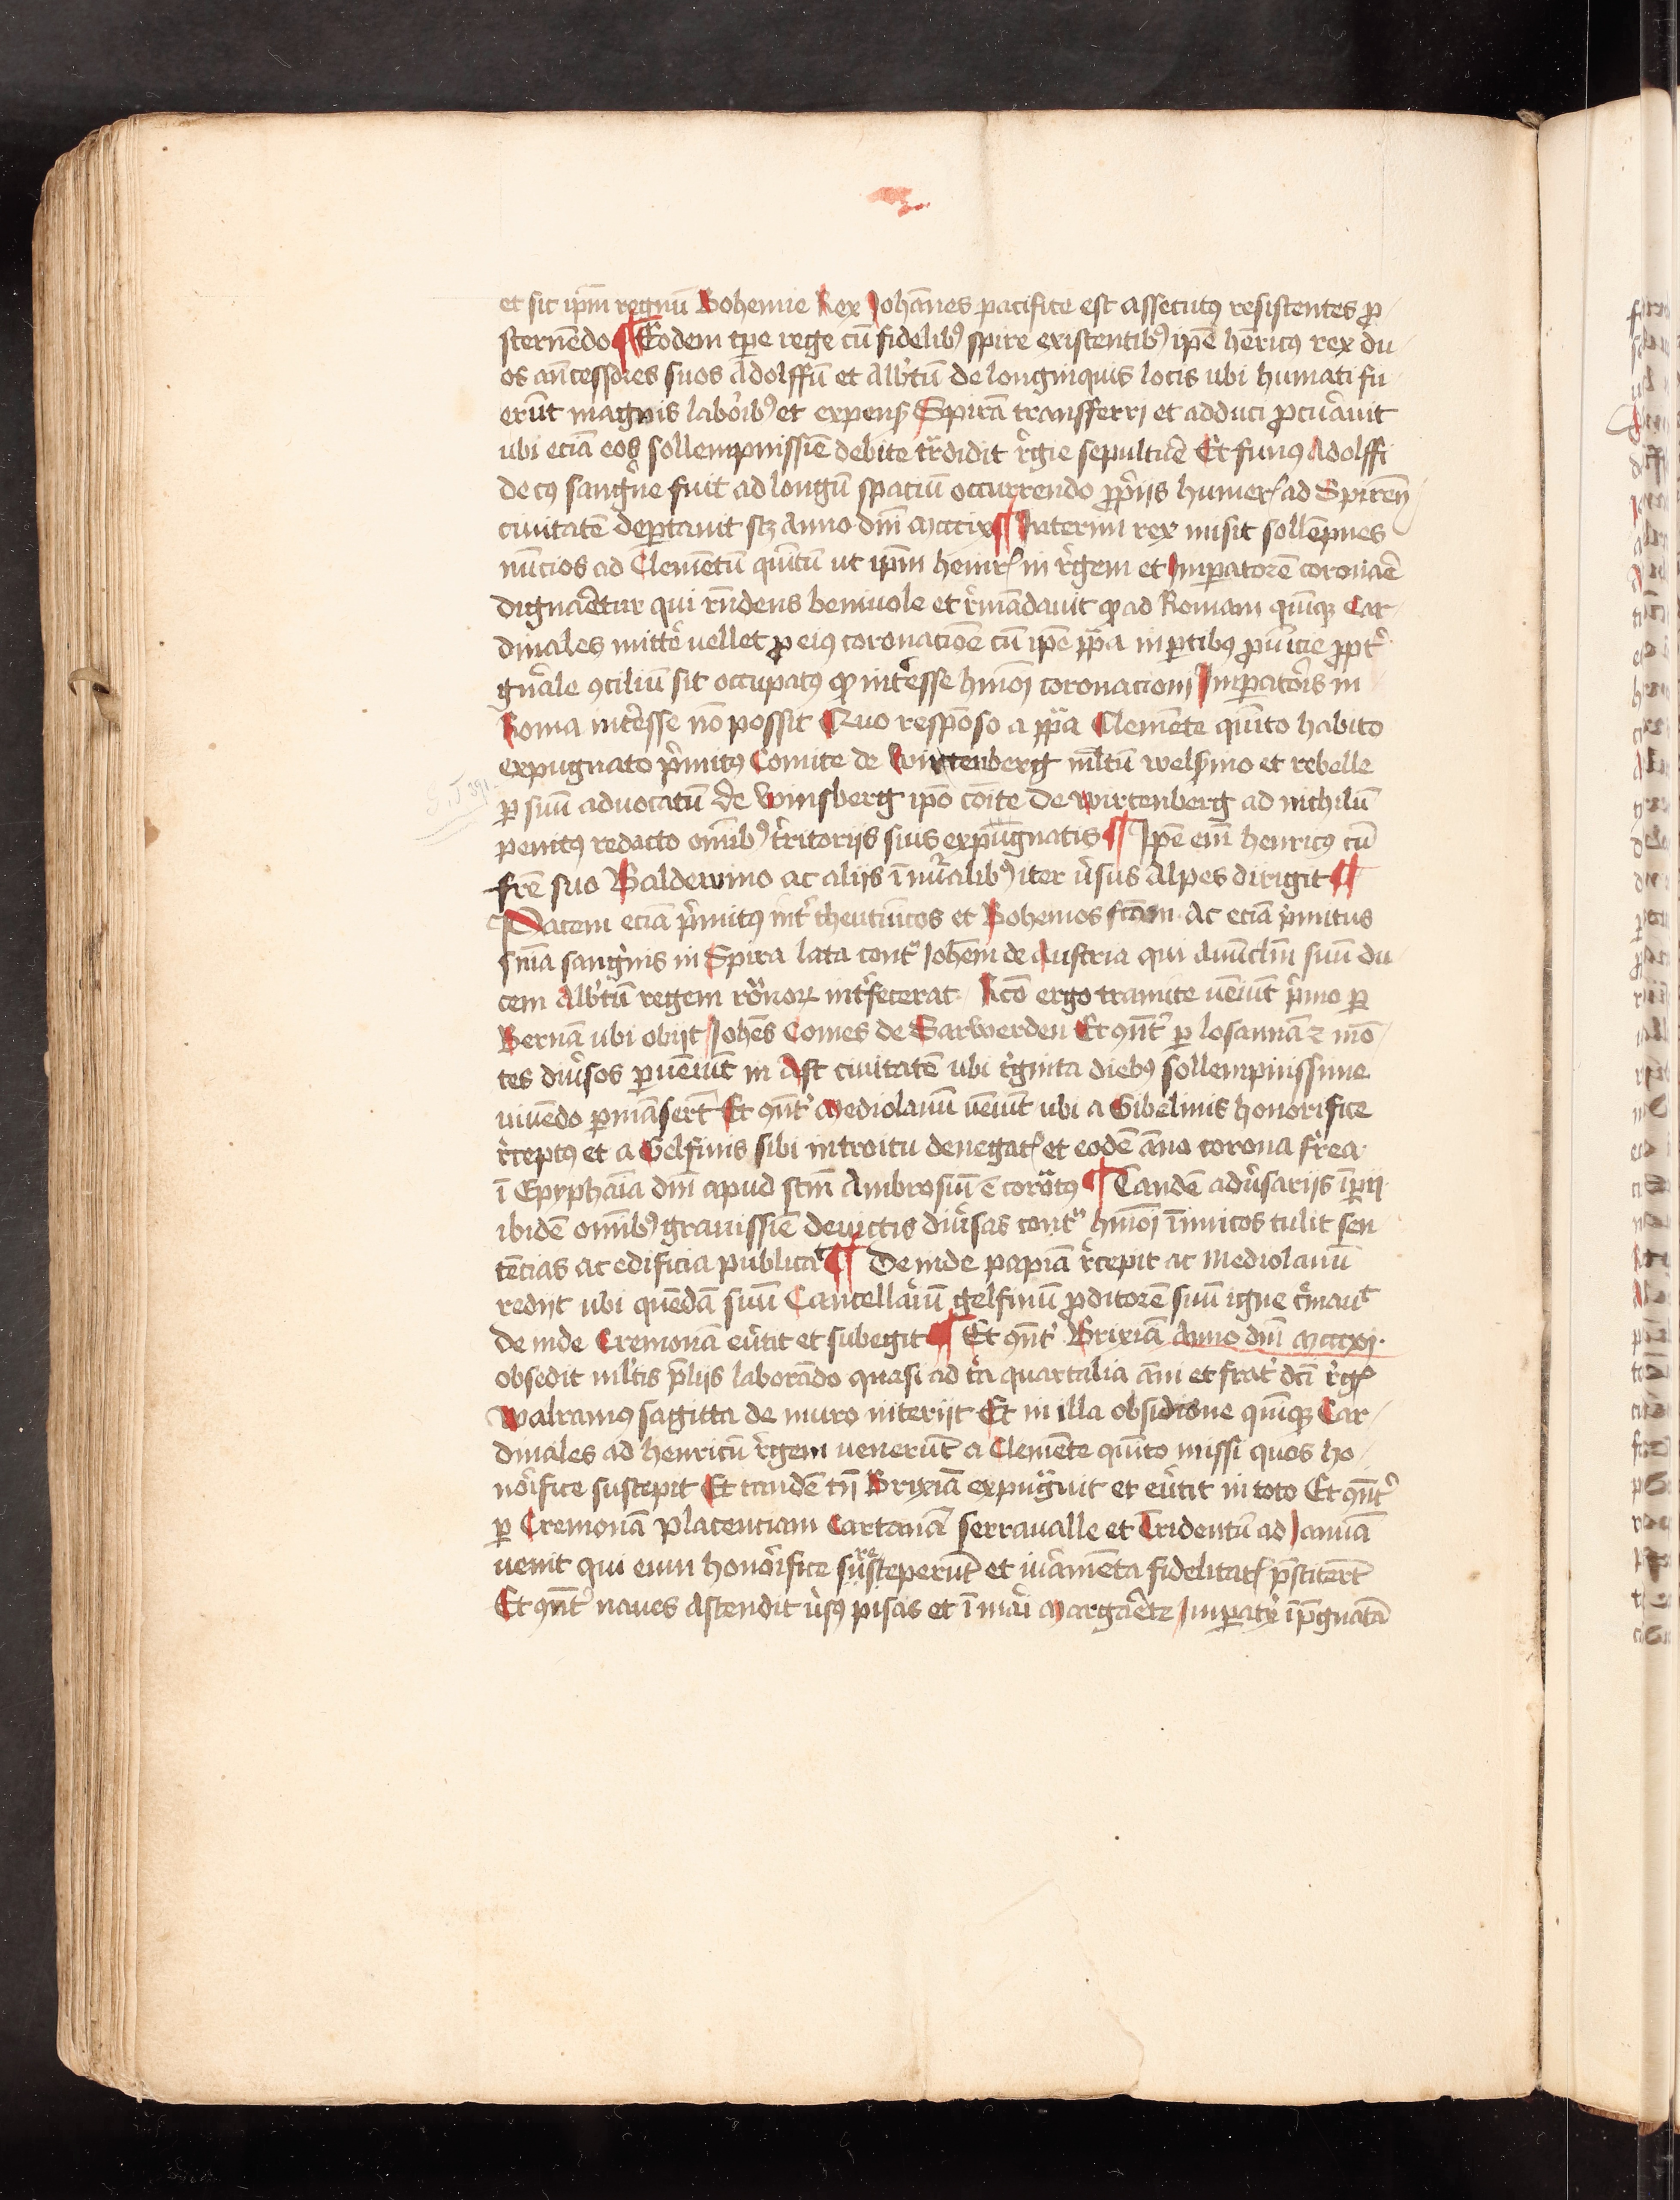 et sic ip̄m regnū Bohemie Rex Johānes pacifice est assecutꝰ resistentes ꝓ
sternēdo ¶ Eodem tp̄e rege cū fidelibꝰ spire existentibꝰ ip̄e hēricꝰ rex du
os an̄cessores suos Adolffū et Alb̓tū de longinquis locis ubi humati fu
erūt magnis labor̓ibꝰ et expens̓ Spirā transferri et adduci ꝓcu̓auit
ubi eciā eos sollempnissīe debite tͣdidit r̓gie sepultur̓e Et funꝰ Adolffi
de cꝰ sanguine fuit ad longū spaciū occurrendo ꝓp̓iis humer̓ ad Spiren̄
ciuitatē deꝑtauit sꝫ Anno dn̄i mcccix ¶ Interim rex misit sollēpnes
nūcios ad Clemētū quītū ut ip̄m heinr̓ in r̓gem et Imꝑatorē coronar̓e
dignar̓etur qui rn̄dens beniuole et r̓mādauit ꝙ ad Romam quīqꝫ Car
dinales mitter̓e uellet ꝓ eiꝰ coronacioē cū ip̄e pp̄a in ꝑtibus ꝓuīcie ꝓpt̓
gn̓ale ꝯciliū sit occupatꝰ ꝙ int̓esse hmōi coronacioni Imꝑator̓is in
Roma int̓esse nō possit Quo respōso a pp̄a Clemēte quīto habito
expugnato p̓mitꝰ Comite de Wirtenberg ml̄tū wels̓mo et rebelle
ꝑ suū aduocatū de Winsberg ip̄o cōite de wirtenberg ad nichilū
penitꝰ redacto oīnibꝰ t̓ritoriis suis expūgnatis ¶ Ip̄e eīm henricꝰ cū
fr̄e suo Baldewino ac aliis ī nu̓alibꝰ iter u̓sus Alpes dirigit ¶
Pacem eciā p̓mitus int̓ theuticos et Bohemos fc̄am Ac eciā p̓mitus
sn̄ia sanguinis in Spira lata contͣ Johēm de Austria qui Auūclm̄ suū du
cem Alb̓tū regem roͣnoꝝ int̓fecerat Rc̄o ergo tramite ueīunt p̓mo ꝑ
Bernā ubi obijt Johēs Comes de Sarwerden Et ꝯn̄t̓ ꝑ losannā ⁊ mō
tes diu̓sos ꝑueīunt in Ast ciuitatē ubi t̓ginta diebꝰ sollempnissime
uiuēdo ꝑmāsert̄ Et ꝯn̄t̓ Mediolanū ueīunt ubi a Gibelinis honorifice
r̓ceptꝰ et a Gelfinis sibi introitu denegat̓ et eodē āno corona fr̓ea
ī Epyphāia dn̄i apud sc̄m Ambrosiū ē coroͣtꝰ ¶ Tandē adu̓sariis īperij
ibidē oīnibꝰ grauissīe deuictis diu̓sas contͣ hmōi īimicos tulit sen
tēcias ac edificia publicaᵗ ¶ De inde papiā r̓cepit ac Mediolanū
redijt ubi quēdā suū Cancellar̓iū gelfinū ꝓditorē suū igne cͬmauᵗ
de inde Cremonā eu̓tit et subegit ¶ Et ꝯn̄t̓ Brixiā Anno dn̄i mcccxi
obsedit ml̓tis p̄liis laborādo quasi ad tͬa quartalia āni et frat̓ dc̄i r̓g̓
Walramꝰ sagitta de muro interijt Et in illa obsidione quīqꝫ Car
dinales ad henricū r̓gem uenerūt a Clemēte quīto missi quos ho
nor̓ifice suscepit Et tandē tn̄ Brixiā expugͣuit et eu̓tit in toto Et ꝯn̄t̓
ꝑ Cremonā Placenciam Cartanā serraualle et Tridentū ad Januā
uenit qui eum honor̓ifice susceperūt et iu̓amēta fidelitat̓ p̄stitert̄
Et ꝯn̄t̓ naues Ascendit u̓sꝰ pisas et ī mār̓i margar̓ete Imꝑatͬ īp̄gnatā